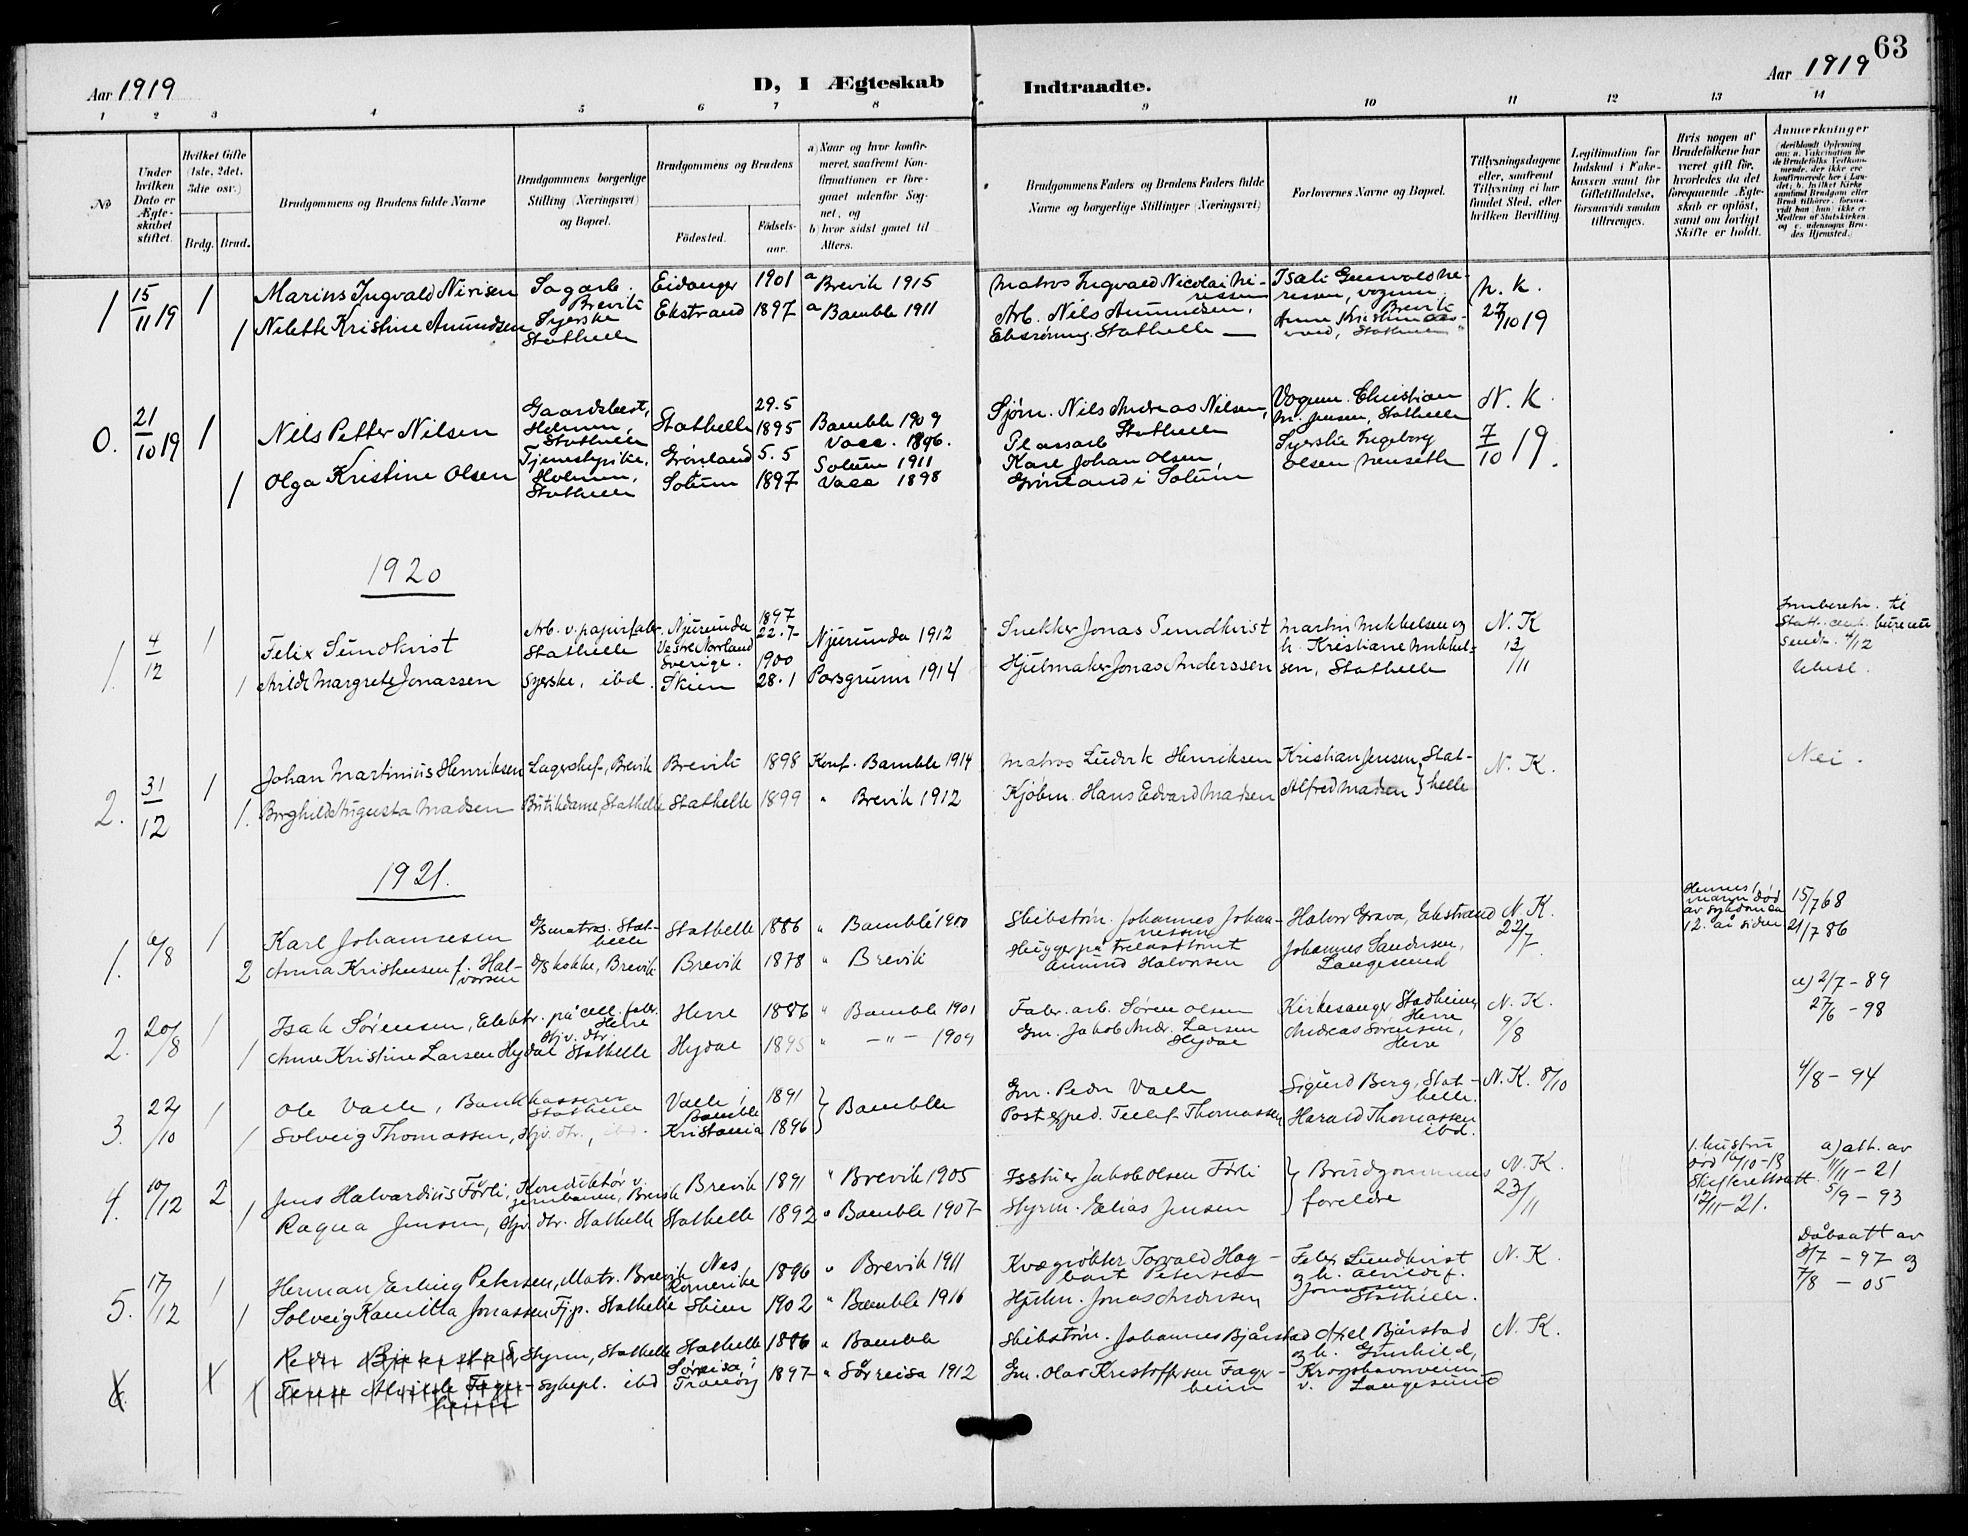 63
Aar 1919
D, I Ægteskab Indtraadte.
Aar 1919
1 2 3 4 5 6 7 8 9 10 11 12 13 14
No
Under hvilken Dato er Ægteskabet stiftet.
Hvilket Gifte (1ste, 2det, 3die osv.)
Brdg. Brud.
Brudgommens og Brudens fulde Navne
Brudgommens borgerlige Stilling (Næringsvei) og Bopæl.
Brudgommens og Brudens
Fødested. Fødselsaar.
a) Naar og hvor konfirmeret, saafremt Konfirmationen er foregaaet udenfor Sognet, og
b) hvor sidst gaaet til Alters.
Brudgommens Faders og Brudens Faders fulde Navne og borgerlige Stillinger (Næringsvei)
Forlovernes Navne og Bopæl.
Tillysningsdagene eller, saafremt Tillysning ei har fundet Sted, efter hvilken Bevilling
Legitimation for Indskud i Enkekassen samt for Giftetilladelse, forsaavidt saadan tiltrænges.
Hvis nogen af Brudefolkene har været gift før, hvorledes da det foregaaende Ægteskab er opløst, samt om lovligt Skifte er holdt.
Anmærkninger
(deriblandt Oplysning om: a. Vakcination for de Brudefolks Vedkommende, der ikke ere konfirmerede her i Landet; b. hvilket Kirkesamfund Brudgom eller Brud tilhører, forsaavidt han (hun) ikke er Medlem af Statskirken og c. udensogns Brudes Hjemsted.)
1 15/11 19 1 Marius Ingvald Nirisen Sagarb. Brevik Eidanger 1901 a Brevik 1915 Matros Ingvald Nicolai Nirissen h. k.
1 Nilette Kristine Amundsen Syerske Stathelle Ekstrand 1897 a Bamble 1911 Arb. Nils Amundsen, Stathelle 27/10 19
0. 21/10 19 1 Nils Petter Nilsen Gaardsbest, Holmen, Stathelle Stathelle 29.5 1895 Bamble 1909 Vacc. 1896. Sjøm. Nils Andreas Nilsen, Stathelle Vognm. Christian M. Jensen, Stathelle N. K.
1 Olga Kristine Olsen Tjenestepike, Holmen, Stathelle Grønland Solum 5.5 1897 Solum 1911 Vacc 1898 Plassarb Karl Johan Olsen Grønland i Solum Syerske Ingeborg Olsen 7/10 19.
1920
1. 4/12 1 Felix Sundkvist Arb. v. papirfabr. Stathelle Njurunda Vestre Norrland Sverige. 1897 22.7 Njurunda 1912 Snekker Jonas Sundkvist Martin Mikkelsen og N. K
1 Margrete Jonassen Syerske, ibd. Skien 1900 28.1 Porsgrunn 1914 Hjulmaker Jonas Anderssen h. Kristiane Mikkelsen, Stathelle 13/11
Innberetn. til Stat. cent. bureau sendt 4/12
2. 31/12 1 Johan Martinius Henriksen Lagerchef, Brevik Brevik 1898 Konf. Bamble 1914 Matros Ludvik Henriksen Kristian Jensen, Stathelle N. K. Nei.
1. Borghild Augusta Madsen Butikdame, Stathelle Stathelle 1899 " Brevik 1912 Kjøbm. Hans Edvard Madsen Alfred Madsen
1921.
1. 6/8 1 Karl Johannesen D/S matros. Stathelle Stathelle 1886 " Bamble 1900 Skibstøm. Johannes Johannessen Halvor Grava, Ekstrand N. K. 22/7 Hennes 1 mann død av sykdom ca 12. år siden 15/7 68
2 Anna Kristensen f. Halvorsen D/S kokke, Brevik Brevik 1878 " Brevik Hugger på trelasttomt Amund Halvorsen Johannes Sandersen, Langesund 21/7 86
2. 20/8 1 Isak Sørensen, Elektr. på cell. fabr. Herre Herre 1886 " Bamble 1901 Fabr. arb. Søren Olsen Kirkesanger Stadheim, Herre N. K. a) 2/7 - 89
1 Anne Kristine Larsen Hydal Hjv. dtr. Stathelle Hydal 1895 " - " - 1909 Gm. Jakob Andr. Larsen Hydal Andreas Sørensen, Herre 9/8 27/6 - 98
3. 22/10 1 Ole Valle, Bankkasserer Stathelle Valle i Bamble 1891 Bamble Gm. Peder Valle Sigurd Berg, Stathelle. N. K. 8/10 4/8 - 94
1 Solveig Thomassen, Hjv. dtr., ibd. Kristiania 1896 Postexped. Tellef Thomassen Harald Thomassen ibd.
4. 10/12 2 Jens Halvardius Førli, Konduktør v. jernbanen, Brevik Brevik 1891 " Brevik 1905 Jakob Olsen Førli Brudgommens foreldre N. K. 23/11 1. hustru død 16/10-18 Skifterettsatt. 12/11-21. a) att. av 11/11 - 21
1 Ragna Jensen, Hjv. dtr. Stathelle Stathelle 1892 " Bamble 1907 Styrm. Elias Jensen 5/9 - 93
5. 17/12 1 Herman Erling Petersen, Matr. Brevik Nes Romerike 1896 " Brevik 1911 Kvegrøkter Torvald Hagbart Petersen Felix Sundkvist og h. f. Jonassen Stathelle. N. K. Dåbsatt av 3/7 - 97 og
1 Solveig Kamilla Jonassen Tj.p. Stathelle Skien 1902 " Bamble 1916 Hjulm. Jonas Andersen 7/8 - 05
6. 1 Peder Bjårstad Styrm, Stathelle Stathelle 1886 " Bamble Skibstøm. Johannes Bjårstad Axel Bjårstad og h. Gunhild, N. K.
1 Terese Alvilde Fagerheim Sykepl. ibd Sørreisa i Tranøy 1897 " Sørreisa 1912 Gm. Olav Kristoffersen Fagerheim Krogshavnveien v. Langesund